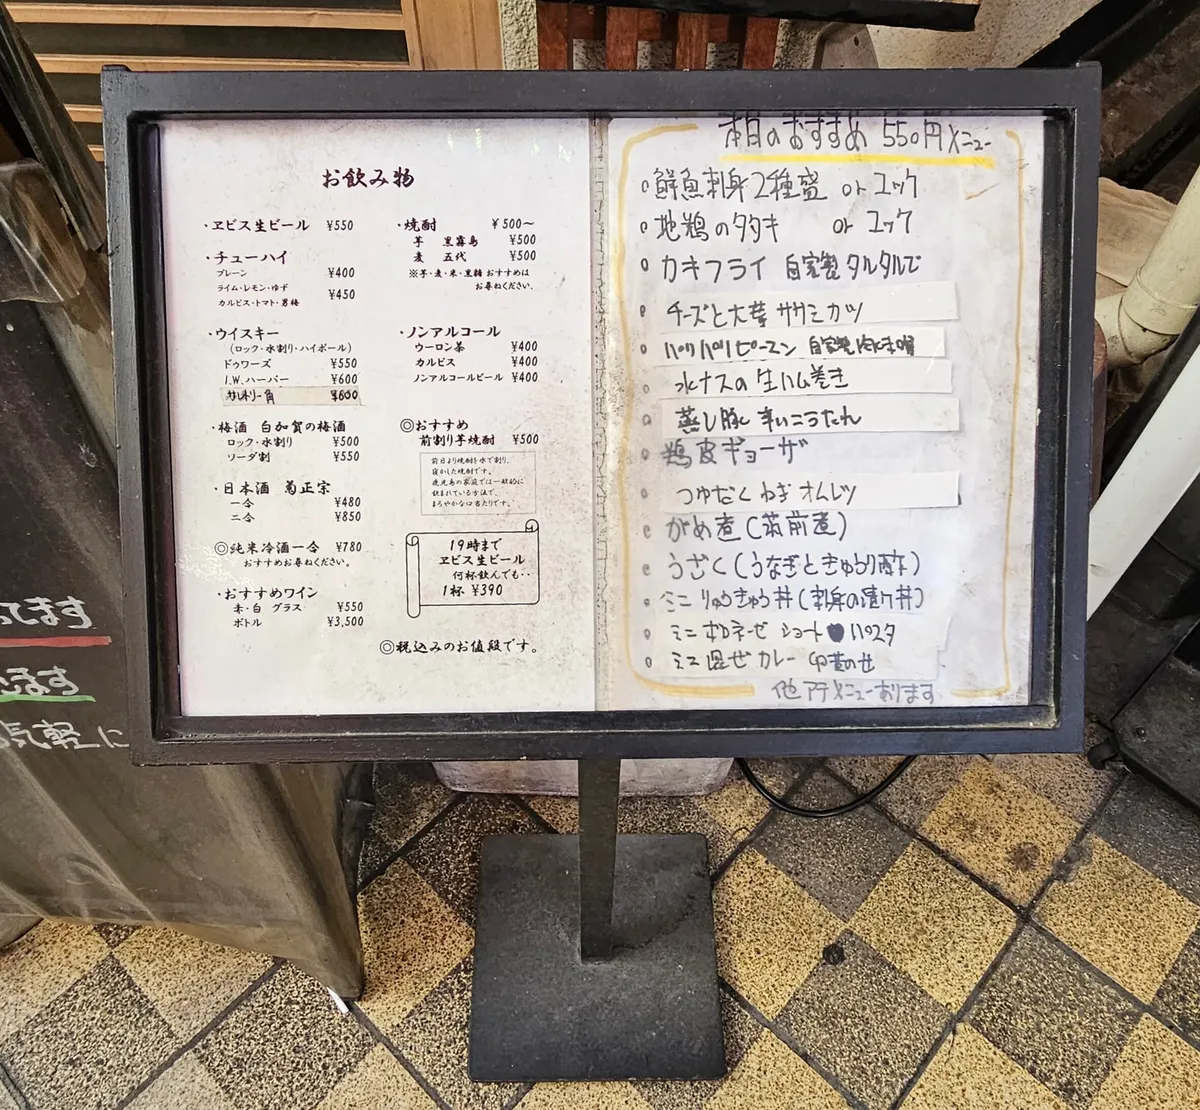 お飲み物
・ヱビス生ビール ¥550
・チューハイ
プレーン ¥400
ライム・レモン・ゆず
カルピス・トマト・男梅 ¥450
・ウイスキー
(ロック・水割り・ハイボール)
ドゥワーズ ¥550
I.W.ハーパー ¥600
サントリー角 ¥600
・梅酒 白加賀の梅酒
ロック・水割り ¥500
ソーダ割 ¥550
・日本酒 菊正宗
一合 ¥480
二合 ¥850
◎純米冷酒一合 ¥780
おすすめお尋ねください。
・おすすめワイン
赤・白 グラス ¥550
ボトル ¥3,500
・焼酎 ¥500〜
芋 黒霧島 ¥500
麦 五代 ¥500
※芋・麦・米・黒糖 おすすめは
お尋ねください。
・ノンアルコール
ウーロン茶 ¥400
カルピス ¥400
ノンアルコールビール ¥400
◎おすすめ
前割り芋焼酎 ¥500
前日より焼酎を水で割り、
寝かした焼酎です。
鹿児島の家庭では一般的に
飲まれている方法で、
まろやかな口当たりです。
19時まで
ヱビス生ビール
何杯飲んでも・・
1杯 ¥390
◎税込みのお値段です。
本日のおすすめ 550円メニュー
鮮魚刺身2種盛 or ユッケ
地鶏のタタキ or ユッケ
カキフライ 自家製タルタルで
チーズと大葉 ササミカツ
パリパリピーマン 自家製肉味噌
水ナスの生ハム巻き
蒸し豚 辛いこうたれ
鶏皮ギョーザ
つゆだく ねぎ オムレツ
がめ煮(筑前煮)
うざく(うなぎときゅうり酢)
ミニ りゅうきゅう丼(刺身の漬け丼)
ミニ ボロネーゼ ショートパスタ
ミニ 混ぜカレー
他アテメニューあります
ってます
きます
気軽に